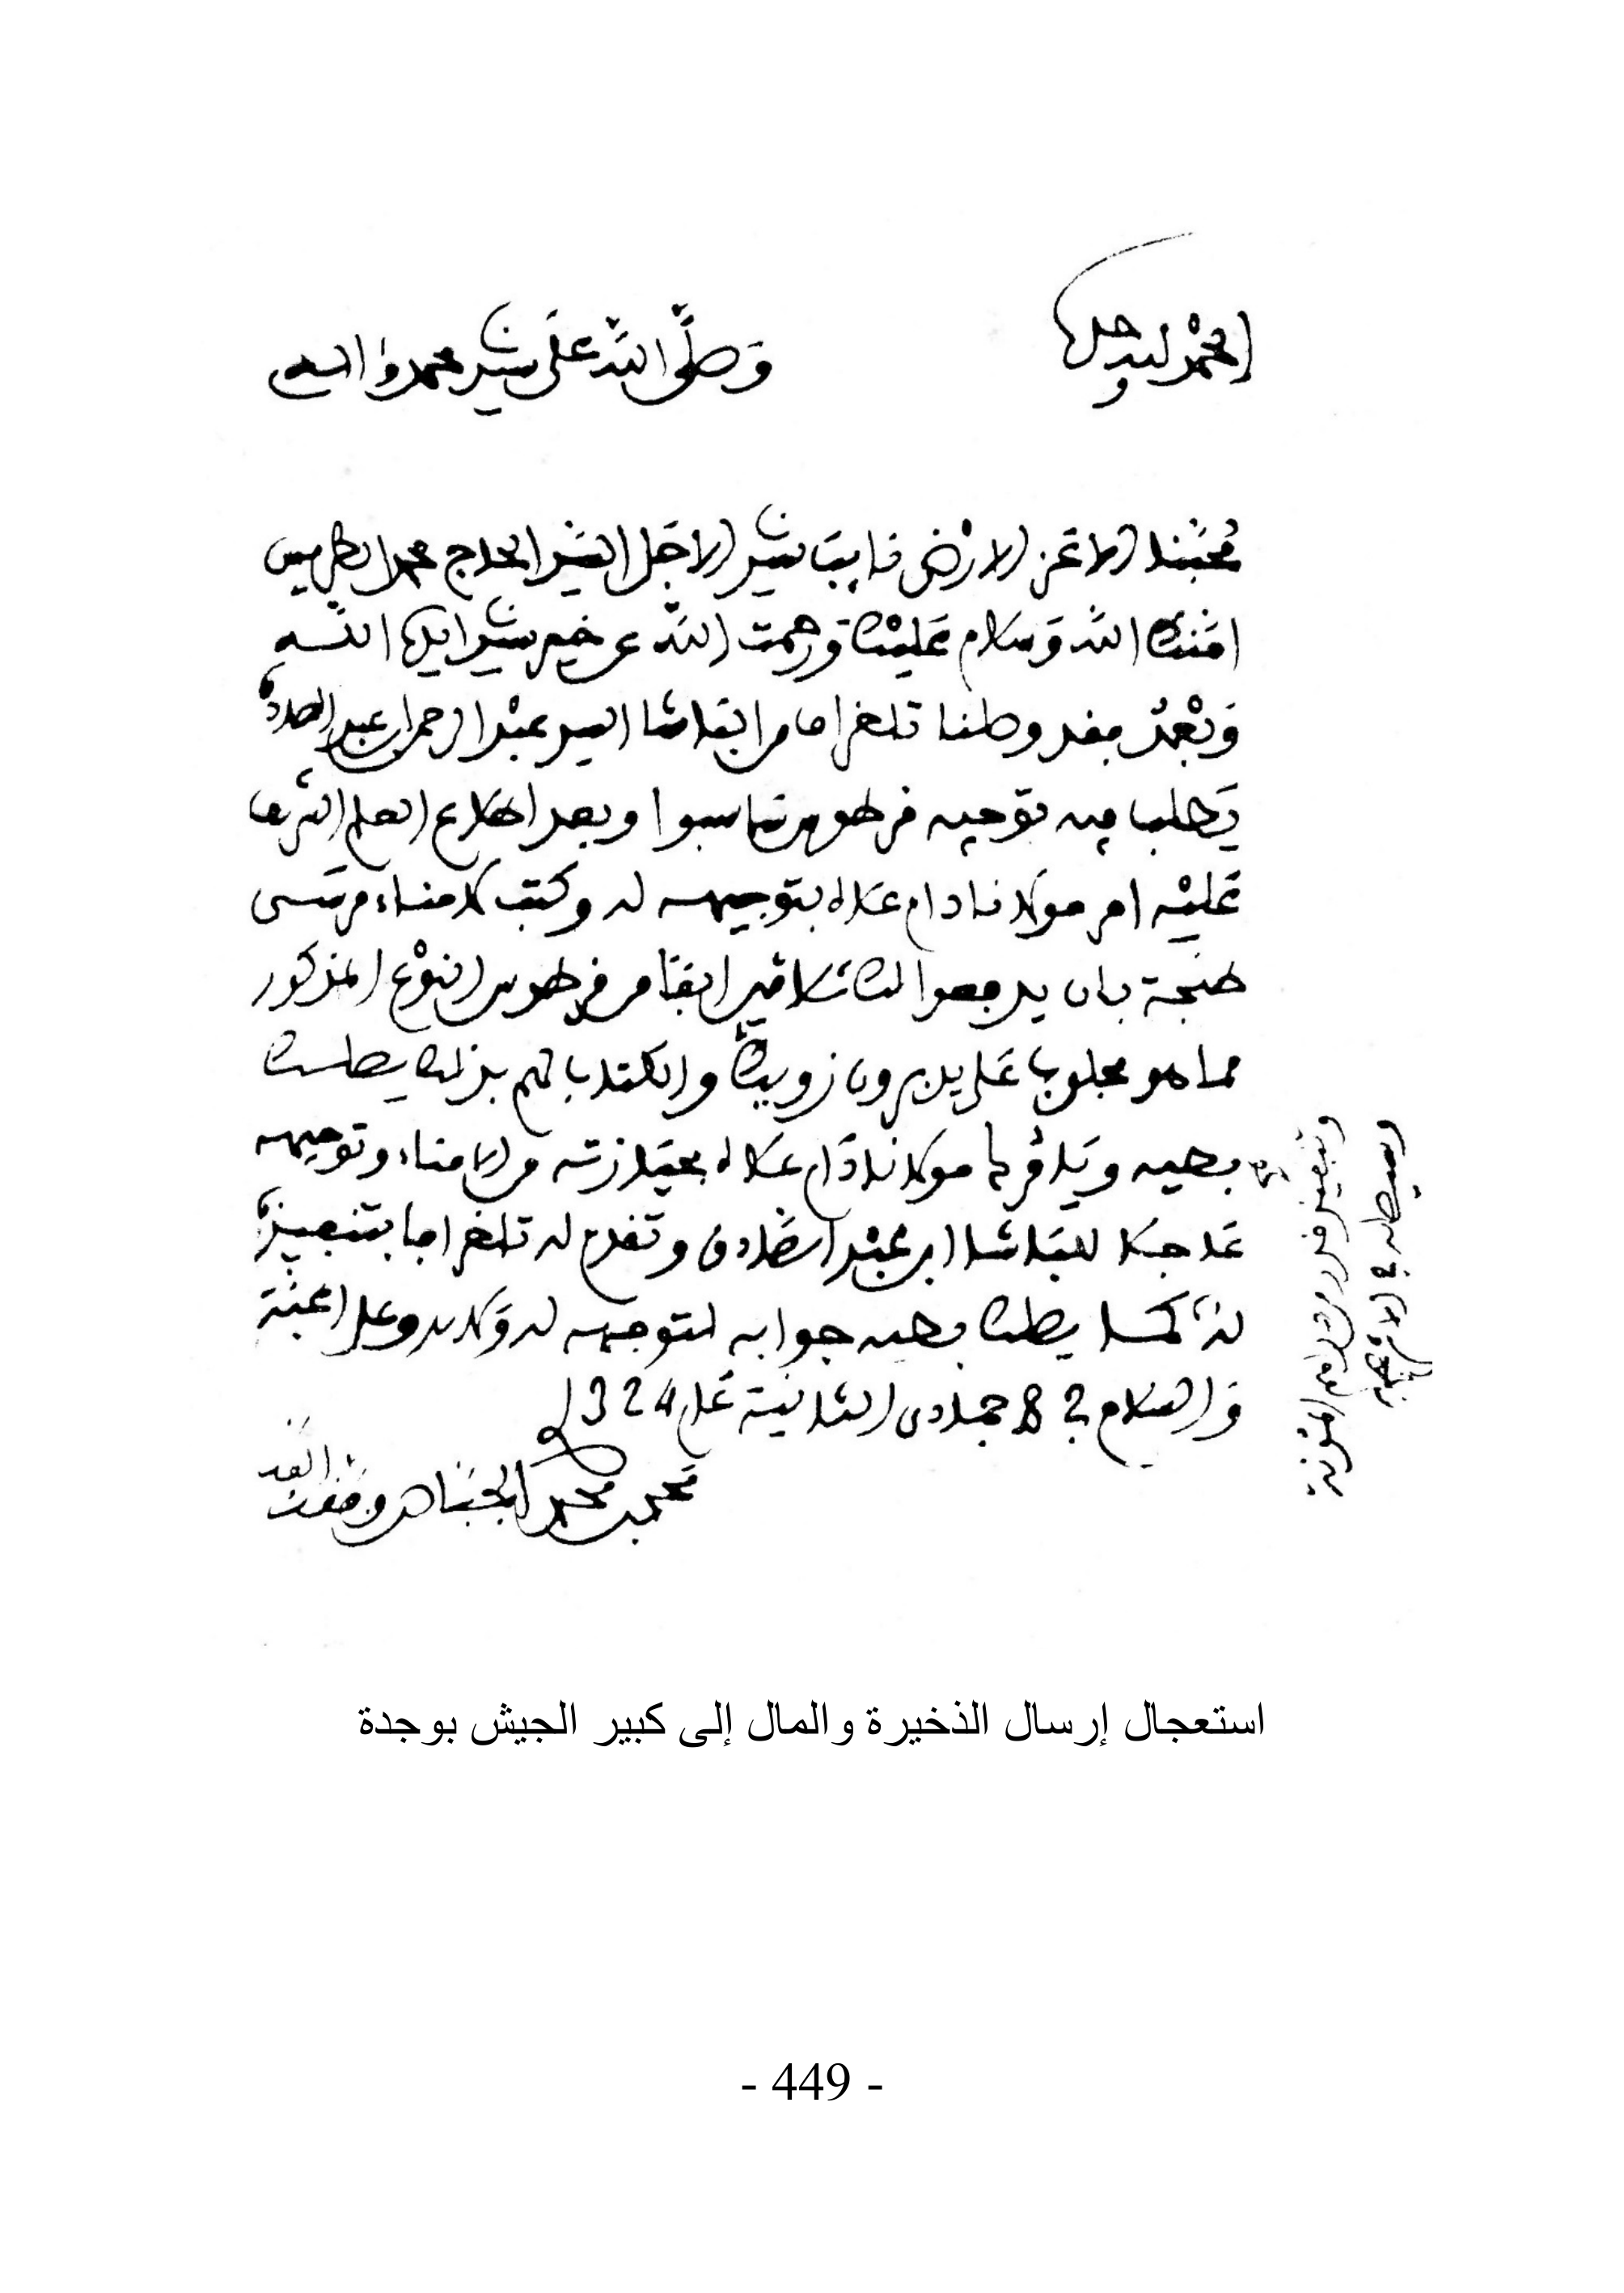 الحمد لله وحده
وصلى الله على سيدنا محمد وآله
محبنا الأعز الأرضى نائب سيدنا الأجل السيد الحاج محمد الطريس
امنك الله وسلام عليك ورحمت الله عن خير سيدنا ايده الله
وبعد فقد وصلنا تلغراما من الباشا السيد عبد الرحمان عبد الصادق
يطلب فيه توجيه قرطوس شاسبوا وبعد اطلاع العلم الشريف
عليه امر مولانا دام علاه بتوجيهه له وكتب لامناء مرسى
طنجة بان يدفعوا لك ثلاثين الفا من قرطوس النوع المذكور
مما هو مجلوب على يد برون زويك والكتاب لهم بذلك يصلك
طيه ويامرك مولانا دام علاه بحيازته من الامناء وتوجيهه
عاجلا للباشا ابن عبد الصادق وتقدم له تلغرافا بتنفيذ
ذلك كما يصلك طيه جوابه لتوجهه له ولا بد وعلى المحبة
والسلام في 8 جمادى الثانية عام 1324
محمد بن محمد الجباص وفقه الله
استعجال إرسال الذخيرة والمال إلى كبير الجيش بوجدة
- 449 -